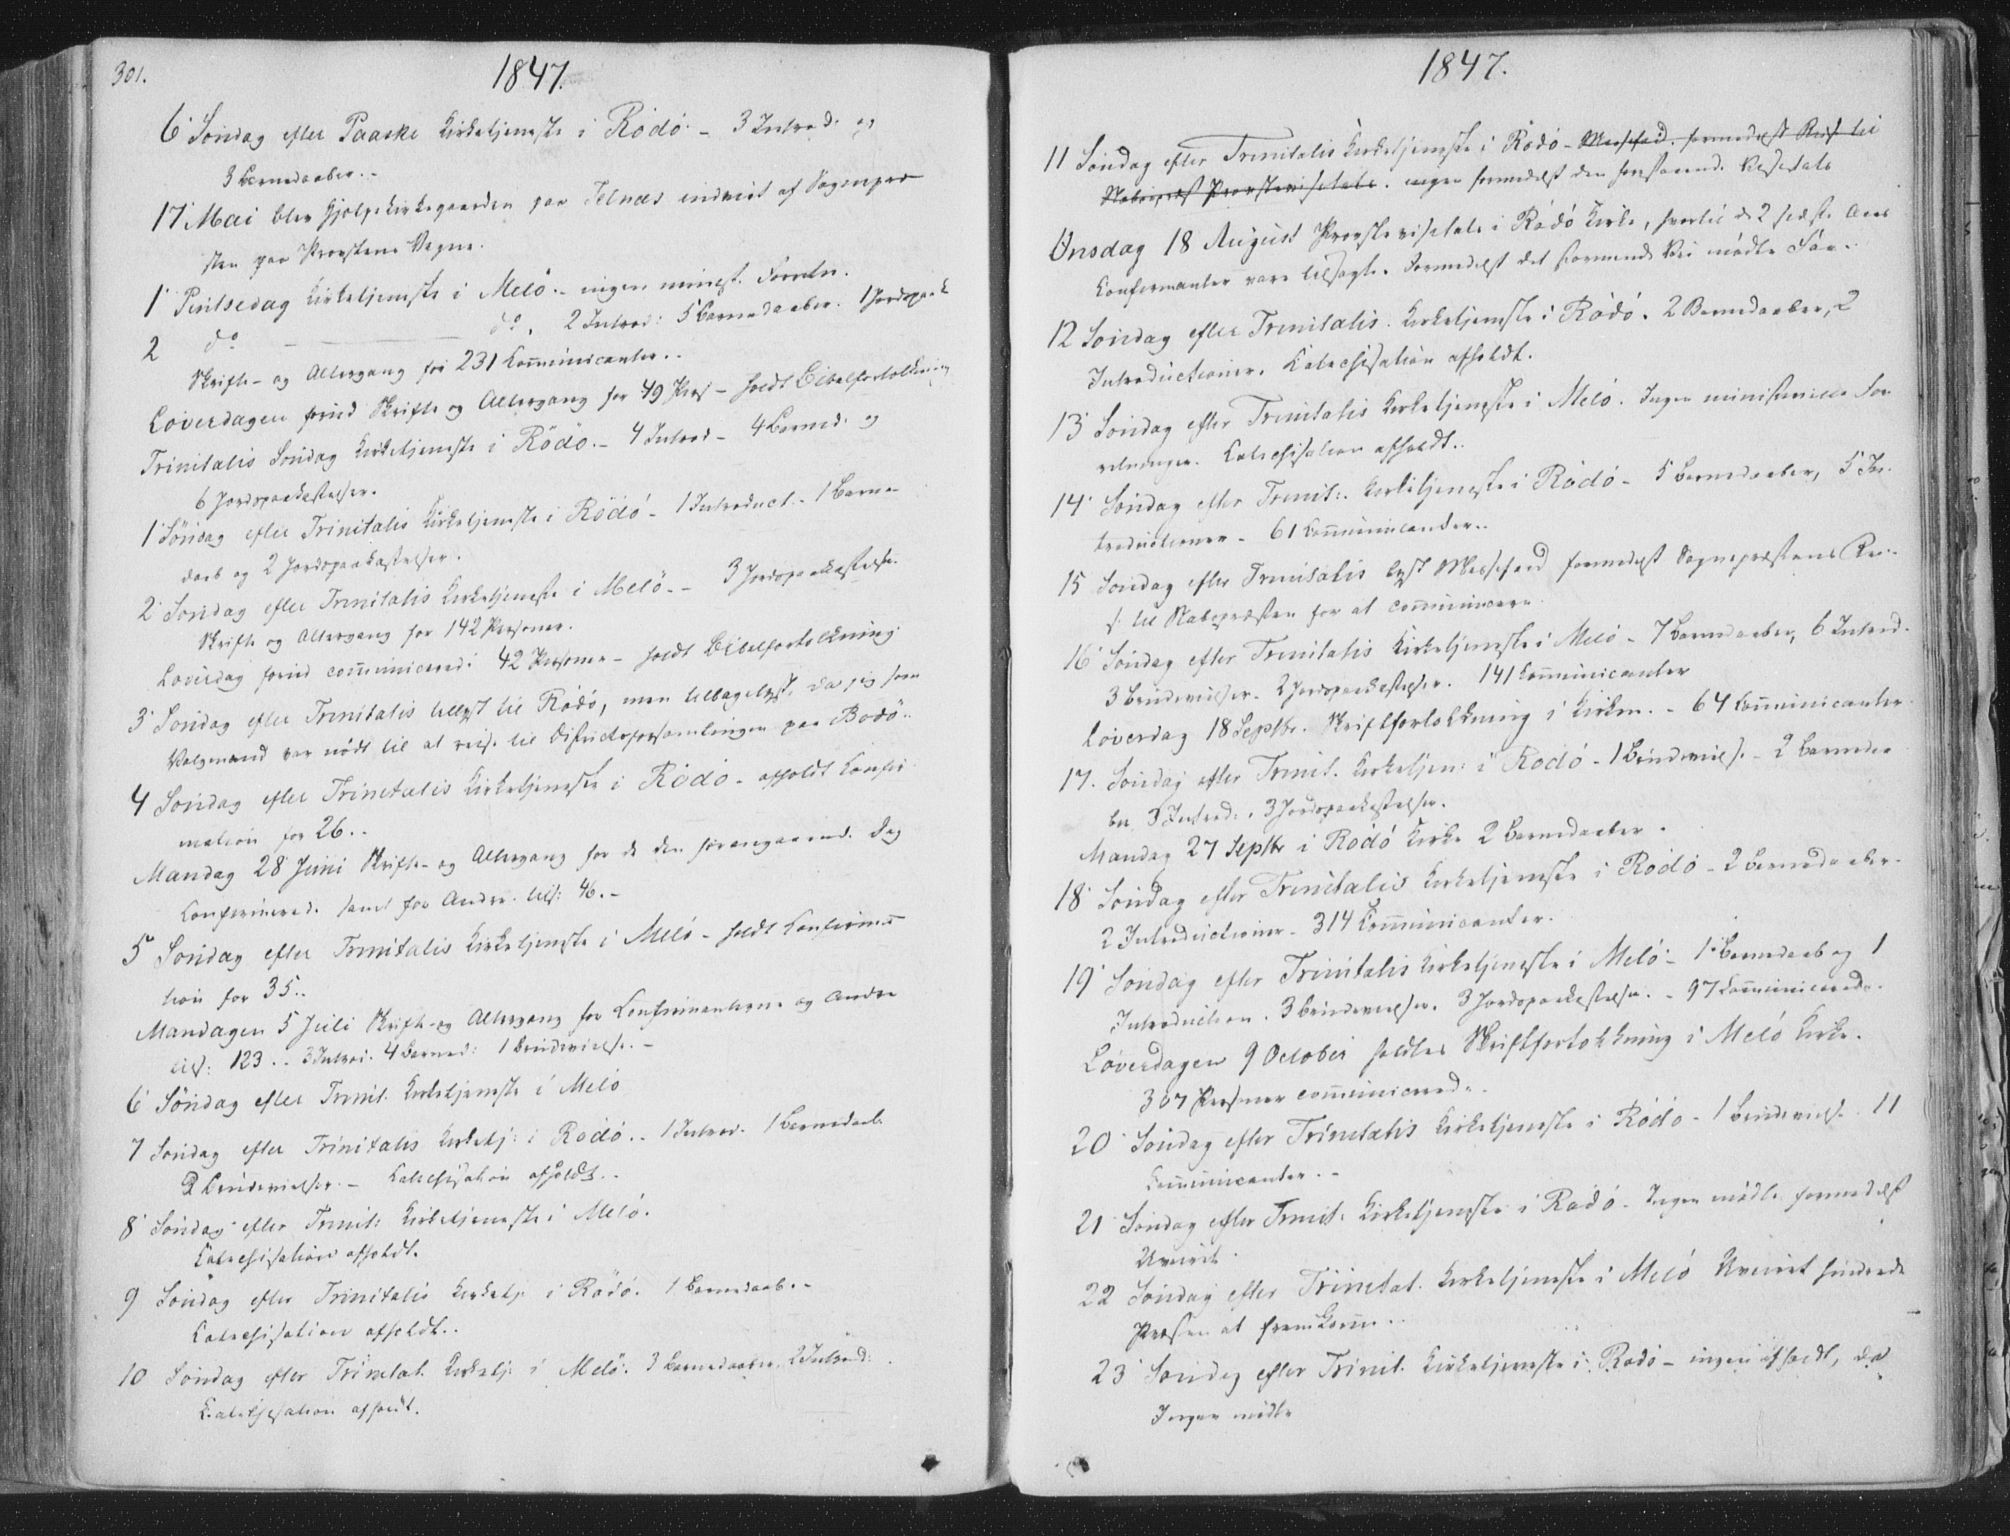 301.
1847.
6 Søndag efter Paaske Kirketjeneste i Rödö - 3 Introd: og
3 Barnedaaber.-
17 Mai blev Hjelpekirkegaarden paa Telnæs indviet af Sognepræ
sten paa Provstens Vegne.
1 Pintsedag Kirketjeneste i Melö.- ingen minist. Forretn.
2 do do. 2 Introd: 5 Barnedaaber. 1 Jordspaak
Skrifte- og Altergang for 231 Com̅unicanter..
Löverdagen forud Skrifte og Altergang for 49 Pers - holdt Bibelfortolkning
Trinitatis Söndag Kirketjeneste i Rödö.- 4 Introd - 4 Barned: og
6 Jordspaakastelser.
1 Söndag efter Trinitatis Kirketjeneste i Rödö - 1 Introduct. - 1 Barne-
daab og 2 Jordspaakastelser.
2 Söndag efter Trinitatis Kirketjeneste i Melö.- 3 Jordspaakastelser.
Skrifte og Altergang for 142 Personer.
Löverdag forud com̅unicerede 42 Personer - holdt Bibelfortolkning
3 Söndag efter Trinitatis tillyst til Rödö, men tilbagelyst, da jeg som
Valgmand var nödt til at reise til Districtsforsamlingen paa Bodö..
4 Söndag efter Trinitatis Kirketjeneste i Rödö - afholdt Confir-
mation for 26..
Mandag 28 Juni Skrifte- og Altergang for de den foregaaende Dag
Confirmerede samt for Andre tils: 46.-
5 Söndag efter Trinitatis Kirketjeneste i Melö - holdt Confirma
tion for 35..
Mandagen 5 Juli Skrifte- og Altergang for Confirmanterne og Andre
tils: 123.. 3 Introd. 4 Barned: 1 Brudevielse.-
6 Söndag efter Trinit. Kirketjeneste i Melö
7 Söndag efter Trinitatis Kirketj: i Rödö.. 1 Introd. 1 Barnedaab.
2 Brudevielser.- Catechisation afholdt..
8 Söndag efter Trinit: Kirketjeneste i Melö.
Catechisation afholdt.
9 Söndag efter Trinitatis Kirketj: i Rödö. 1 Barnedaab.-
Catechisation afholdt..
10 Söndag efter Trinitat. Kirketj: i Melö. 3 Barnedaaber. 2 Introd:
Catechisation afholdt.
1847.
11 Söndag efter Trinitatis Kirketjeneste i Rödö - Messefald formedelst Reise til
Nabopræst Provstevisitats. ingen formedelst den forestaaende Visitats
Onsdag 18 August Provstevisitats i Rödö Kirke, hvortil de 2 sidste Aars
Confirmanter vare tilsagte. Formedelst det stormende Veir mödte Faa..
12 Söndag efter Trinitatis. Kirketjeneste i Rödö. 2 Barnedaaber, 2
Introductioner. Catechisation afholdt.
13 Söndag efter Trinitatis Kirketjeneste i Melö. Ingen ministerielle For
retninger. Catechisation afholdt..
14 Söndag efter Trinit:. Kirketjeneste i Rödö - 5 Barnedaaber, 5 In-
troductioner - 61 Com̅unicanter..
15 Söndag efter Trinitatis lyst Messefald formedelst Sognepræstens Rei-
se til Nabopræsten for at com̅unicere
16 Söndag efter Trinitatis Kirketjeneste i Melö - 7 Barnedaaber, 6 Introd.
3 Brudevielser. 2 Jordspaakastelser. 141 Com̅unicanter
Löverdag 18 Septbr. Skriftfortolkning i Kirken.- 64 Com̅unicanter
17. Söndag efter Trinit. Kirketjen: i Rödö - 1 Brudevielse - 2 Barnedaa
ber 3 Introd:, 3 Jordspaakastelser.
Mandag 27 Septbr i Rödö Kirke 2 Barnedaaber.
18 Söndag efter Trinitatis Kirketjeneste i Rödö - 2 Barnedaaber.
2 Introductioner - 314 Com̅unicanter.
19 Söndag efter Trinitatis Kirketjeneste i Melö - 1 Barnedaab og 1
Introduction. 3 Brudevielser. 3 Jordspaakastelser.- 97 Com̅unicerede.
Löverdagen 9 October holdtes Skriftfortolkning i Melö Kirke.
307 Personer com̅unicerede.
20 Söndag efter Trinitatis Kirketjeneste i Rödö - 1 Brudevielse. 11
Com̅unicanter.-
21 Söndag efter Trinit. Kirketjeneste i Rödö - Ingen mödte formedelst
Uveirt.
22 Söndag efter Trinitat. Kirketjeneste i Melö Uveiret hindrede
Præsten at fremkom̅e..
23 Söndag efter Trinit. Kirketjeneste i Rödö - ingen afholdt, da
Ingen mödte